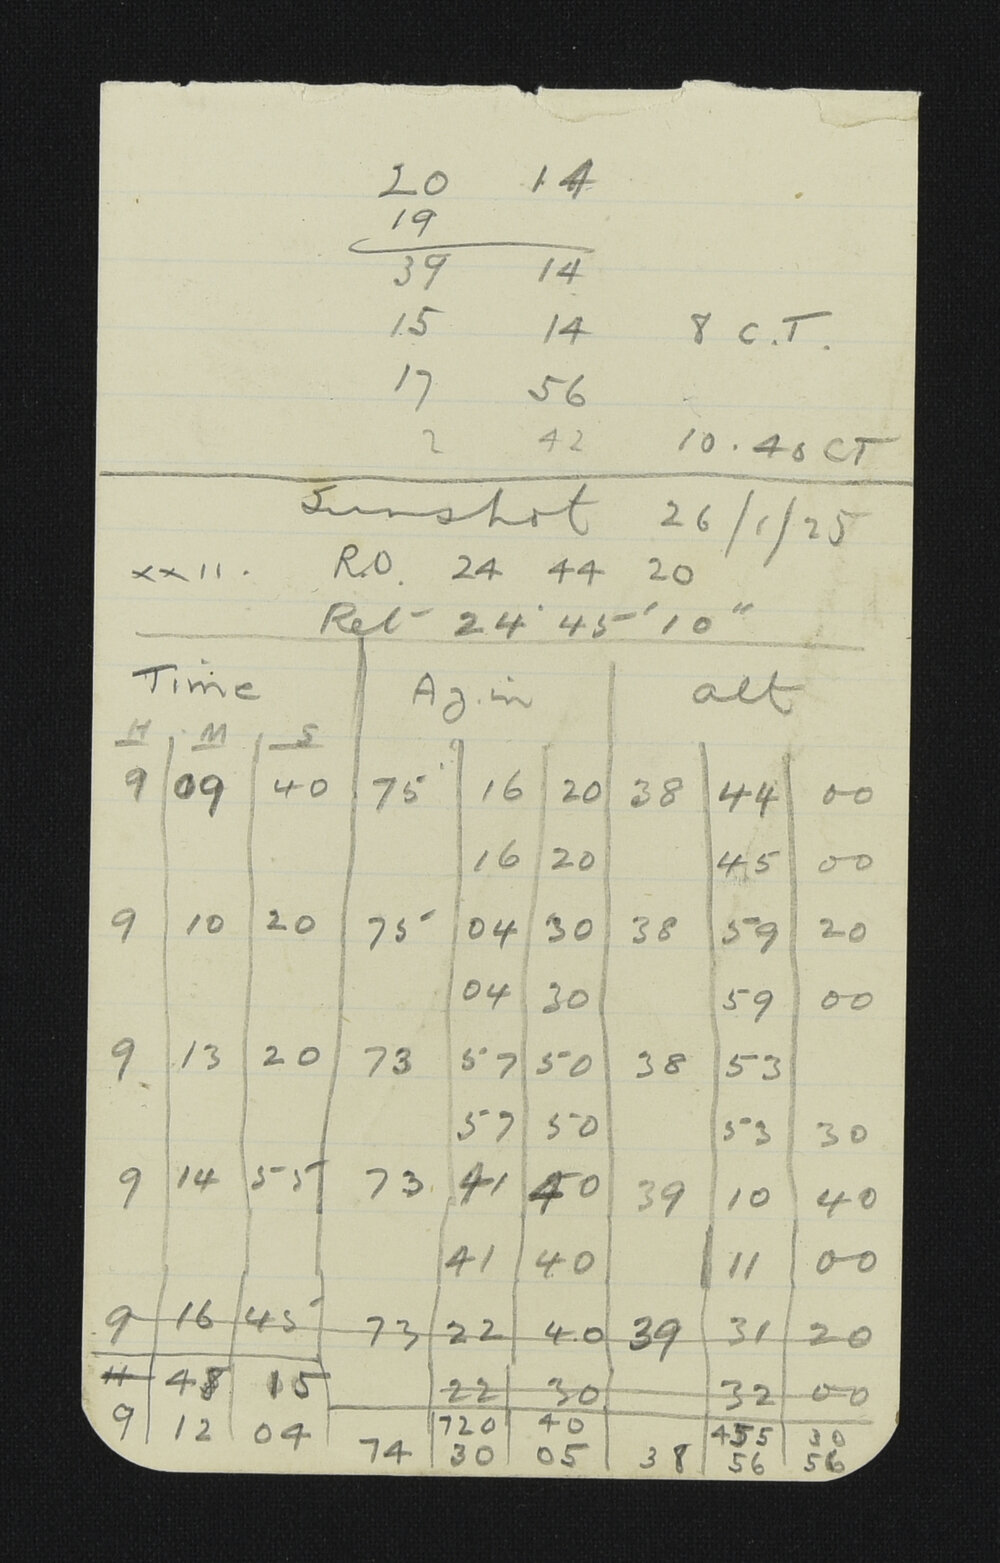 20 14
19
39 14
15 14 8 C.T.
17 56
2 42 10.40 CT
Sunshot 26/1/25
xxii. R.O. 24 44 20
Ret 24° 45' 10"
Time Azim alt
H M S
9 09 40 75 16 20 38 44 00
16 20 45 00
9 10 20 75 04 30 38 59 20
04 30 59 00
9 13 20 73 57 50 38 53
57 50 53 30
9 14 55 73 41 40 39 10 40
41 40 11 00
9 16 45 73 22 40 39 31 20
22 30 32 00
48 15
720 40 455 30
9 12 04 74 30 05 38 56 56